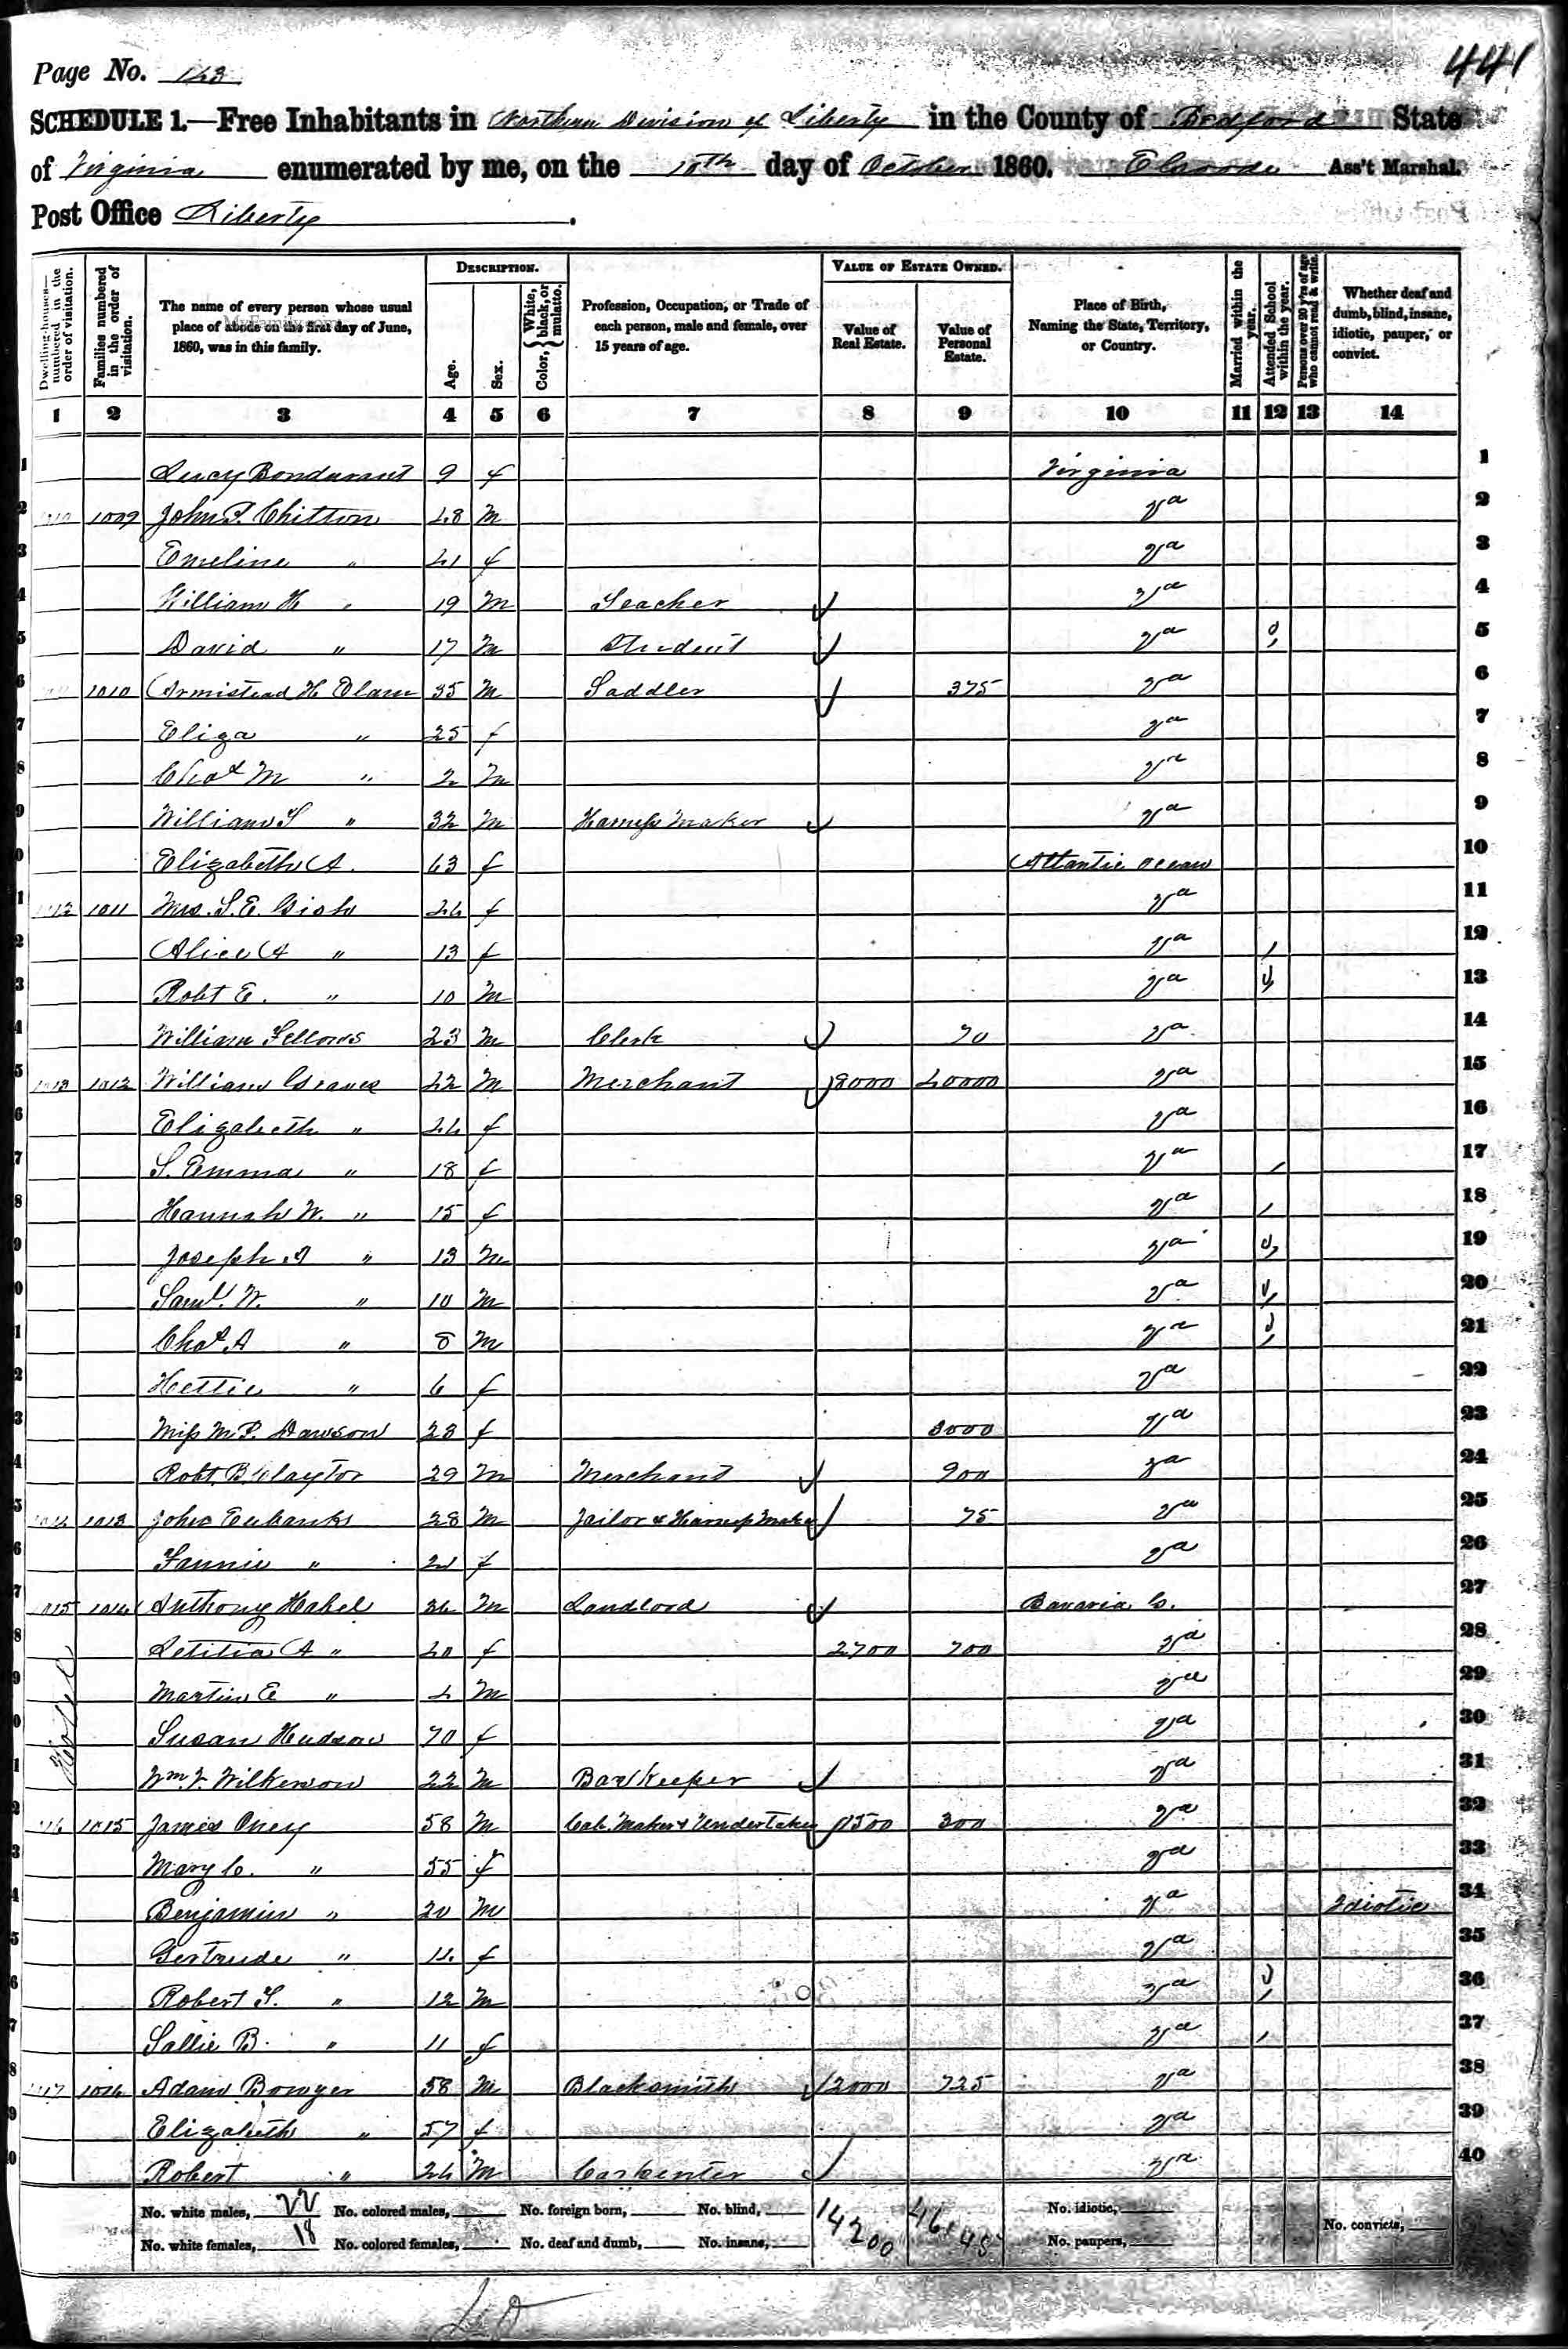 Page No. 163
441
SCHEDULE 1.—Free Inhabitants in Northern Division of Liberty in the County of Bedford State
of Virginia enumerated by me, on the 10th day of October 1860. Ass't Marshal.
Post Office Liberty.
Dwelling-houses—numbered in the order of visitation. Families numbered in the order of visitation. The name of every person whose usual place of abode on the first day of June, 1860, was in this family. DESCRIPTION. Age. Sex. Color, { White, black, or mulatto. Profession, Occupation, or Trade of each person, male and female, over 15 years of age. VALUE OF ESTATE OWNED. Value of Real Estate. Value of Personal Estate. Place of Birth, Naming the State, Territory, or Country. Married within the year. Attended School within the year. Persons over 20 y'rs of age who cannot read & write. Whether deaf and dumb, blind, insane, idiotic, pauper, or convict.
1 2 3 4 5 6 7 8 9 10 11 12 13 14
1 Lucy Bondurant 9 f Virginia 1
2 1009 John T. Chitton 48 m Va 2
3 Emeline " 41 f Va 3
4 William H " 19 m Teacher Va 4
5 David " 17 m Student Va / 5
6 1010 Armistead H Elam 35 m Saddler 375 Va 6
7 Eliza " 25 f Va 7
8 Chas M " 2 m Va 8
9 William S " 32 m Harness Maker Va 9
0 Elizabeth A. 63 f Atlantic Ocean 10
1 1012 1011 Mrs. S. E. Gish 44 f Va 11
2 Alice A " 13 f Va / 12
3 Robt E. " 10 m Va / 13
4 William Fellows 23 m Clerk 70 Va 14
5 1013 1012 William Graves 42 m Merchant 8000 40000 Va 15
6 Elizabeth " 44 f Va 16
7 S. Emma " 18 f Va / 17
8 Hannah W. " 15 f Va / 18
9 Joseph A " 13 m Va / 19
0 Saml. W. " 10 m Va / 20
1 Chas. A " 8 m Va / 21
2 Hettie " 6 f Va 22
3 Miss M. P. Dawson 23 f 3000 Va 23
4 Robt. B. Claytor 29 m Merchant 900 Va 24
5 1014 1013 John Eubanks 28 m Jailor & Harness Maker 75 Va 25
6 Fannie " 21 f Va 26
7 1015 1014 Anthony Habel 34 m Landlord Bavaria G. 27
8 Letitia A " 40 f 2700 700 Va 28
9 Martin E " 4 m Va 29
0 Susan Hudson 70 f Va 30
Hotel
1 Wm. V. Wilkerson 22 m Bar Keeper Va 31
2 1015 James Oney 58 m Cab. Maker & Undertaker 1500 300 Va 32
3 Mary C. " 55 f Va 33
4 Benjamin " 20 m Va Idiotic 34
5 Gertrude " 14 f Va 35
6 Robert S. " 12 m Va / 36
7 Sallie B. " 11 f Va / 37
8 1017 1016 Adam Bowyer 58 m Blacksmith 2000 725 Va 38
9 Elizabeth " 57 f Va 39
0 Robert " 24 m Carpenter Va 40
No. white males, 22 No. colored males, No. foreign born, No. blind, 14200 No. idiotic,
No. white females, 18 No. colored females, No. deaf and dumb, No. insane, No. paupers, No. convicts,